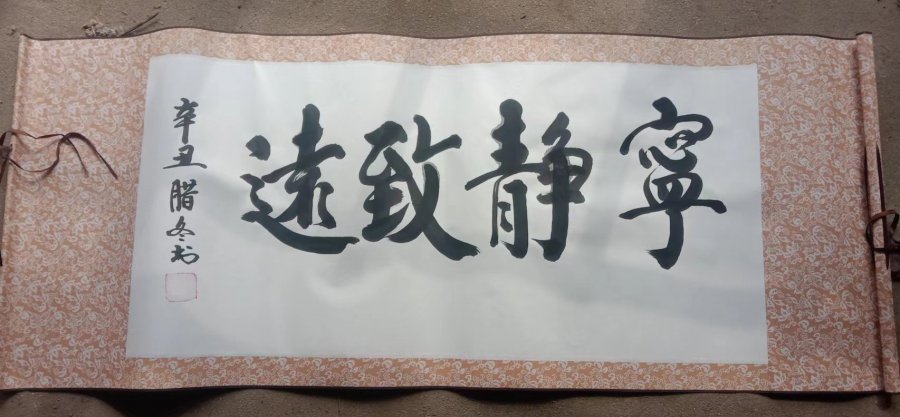 寧靜致遠
辛丑腊冬书